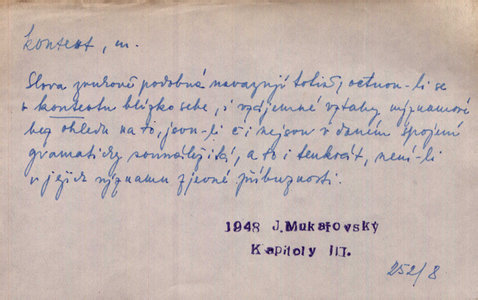 kontext, m.
Slova zvukově podobná navazují totiž, octnou-li se
v kontextu blízko sebe, i vzájemné vztahy významové
bez ohledu na to, jsou-li či nejsou v daném spojení
gramaticky sounáležitá, a to i tenkrát, není-li
v jejich významu zjevné příbuznosti.
1948 J.Mukařovský
Kapitoly III.
252/8